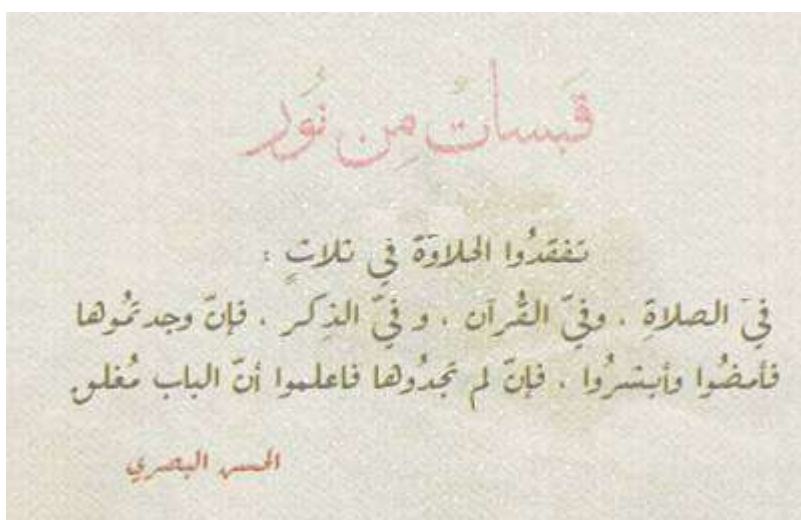 قَبسات مِن نُور
تفقدُوا الحلاوَة في ثلاثٍ :
فيَ الصلاةِ . وفيّ القُرآن . و فيّ الذِكر . فإنّ وجدتمُوها
فأمضُوا وأبشرُوا . فإنّ لم تجدُوها فاعلموا أنّ الباب مُغلق
الحسن البصري